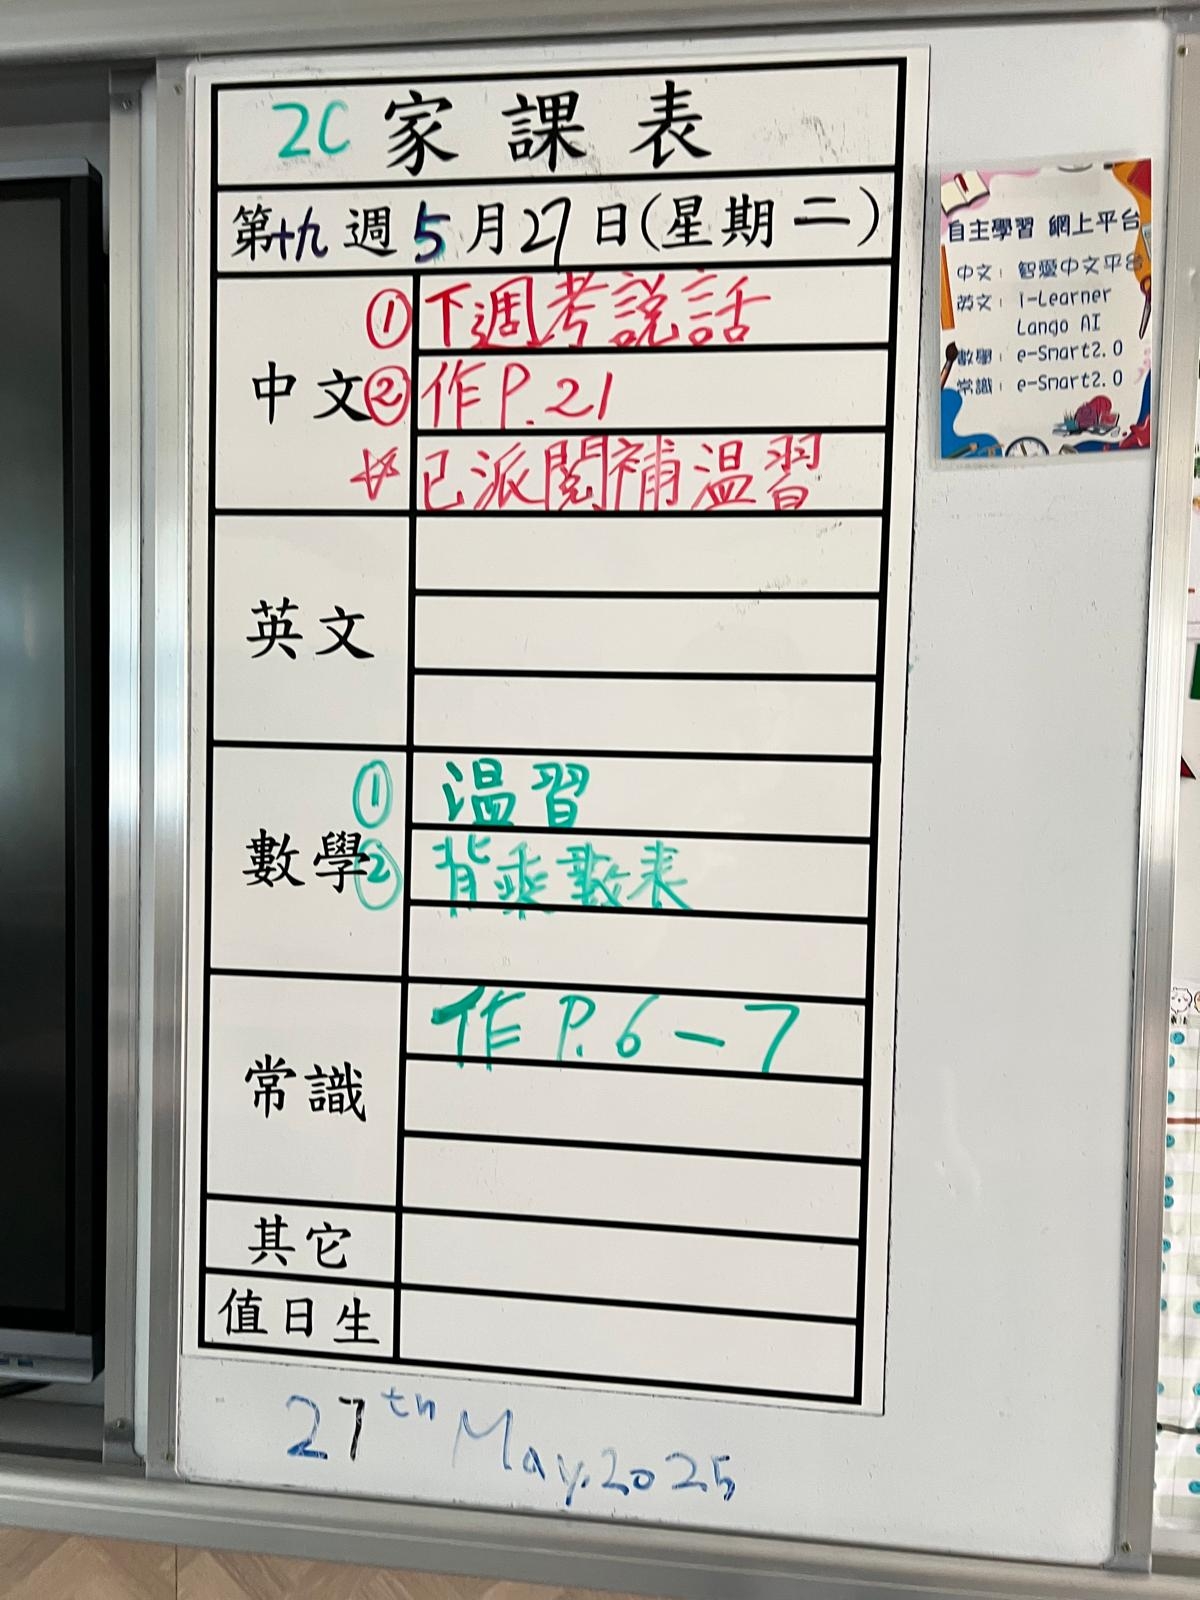 2C 家課表
第十九週5月27日(星期二)
中文
① 下週考説話
② 作P.21
☆ 已派閱補温習
英文
數學
① 温習
② 背乘數表
常識
作 P.6-7
其它
值日生
27th May, 2025
自主學習 網上平台
中文: 智愛中文平台
英文: i-Learner
Lango AI
數學: e-Smart2.0
常識: e-Smart2.0